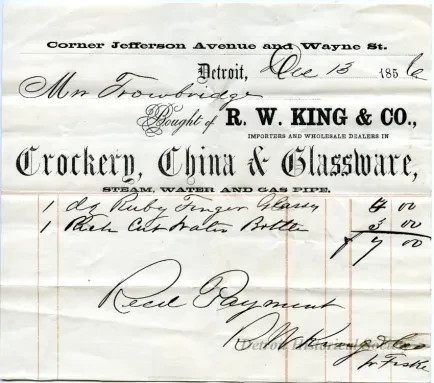 Corner Jefferson Avenue and Wayne St.
Detroit, Dec 13 1856
Mrs Trowbridge
Bought of R. W. KING & CO.,
IMPORTERS AND WHOLESALE DEALERS IN
Crockery, China & Glassware,
STEAM, WATER AND GAS PIPE.
1 dz Ruby Finger Glasses 4 00
1 Rich Cut Water Bottle 3 00
7 00
Recd Payment
R W King & Co
pr Fiske
Detroit Historical